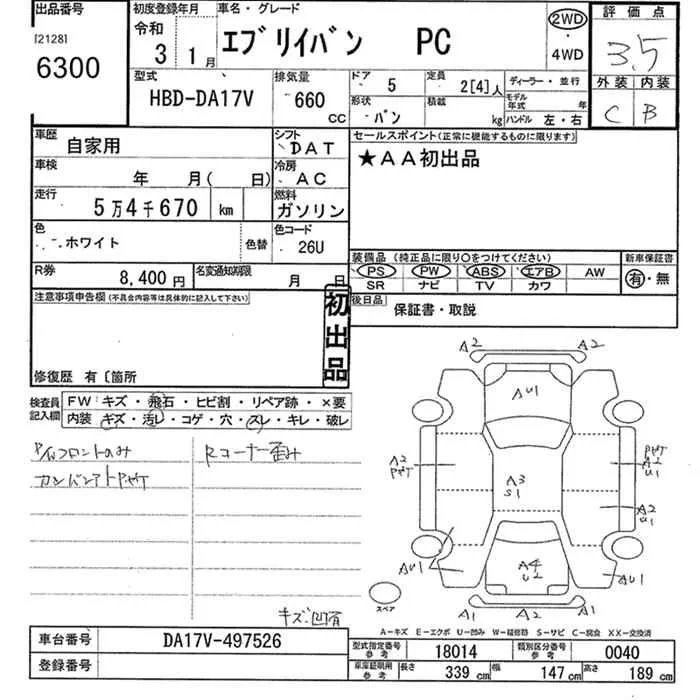 出品番号
[2128]
6300
初度登録年月
令和
3 1月
車名・グレード
エブリイバン PC
2WD
・
4WD
評価点
3.5
外装 内装
C B
型式
HBD-DA17V
排気量
660
CC
ドア 5
定員 2[4]人
形状 バン
積載 kg
ディーラー・並行
モデル年式 年
ハンドル 左・右
車歴 自家用
シフト DAT
車検 年 月( 日)
冷房 AC
走行 5万4千670 km
燃料 ガソリン
色 ホワイト 色替
色コード 26U
R券 8,400円
名変通知期限 月 日
セールスポイント(正常に機能するものに限ります)
★AA初出品
装備品 (純正品に限り○をつけてください)
新車保証書
PS PW ABS エアB AW
SR ナビ TV カワ
有・無
後日品 保証書・取説
注意事項申告欄(不具合内容等は具体的に記入して下さい)
初出品
修復歴 有〔箇所
検査員記入欄
FW:キズ・飛石・ヒビ割・リペア跡・×要
内装:キズ・汚レ・コゲ・穴・スレ・キレ・破レ
P/Wフロントのみ
Rコーナー歪み
キズ凹有
A2 A2
AU1
A2
A3
S1
A2
U1
A2
U1
AU1
A4
U2
AU1
A1 A2 A1
スペア
A-キズ E-エクボ U-凹み W-補修跡 S-サビ C-腐食 XX-交換済
車台番号 DA17V-497526
登録番号
型式指定番号 参考 18014
類別区分番号 参考 0040
車庫証明用 参考
長さ 339 cm
幅 147 cm
高さ 189 cm